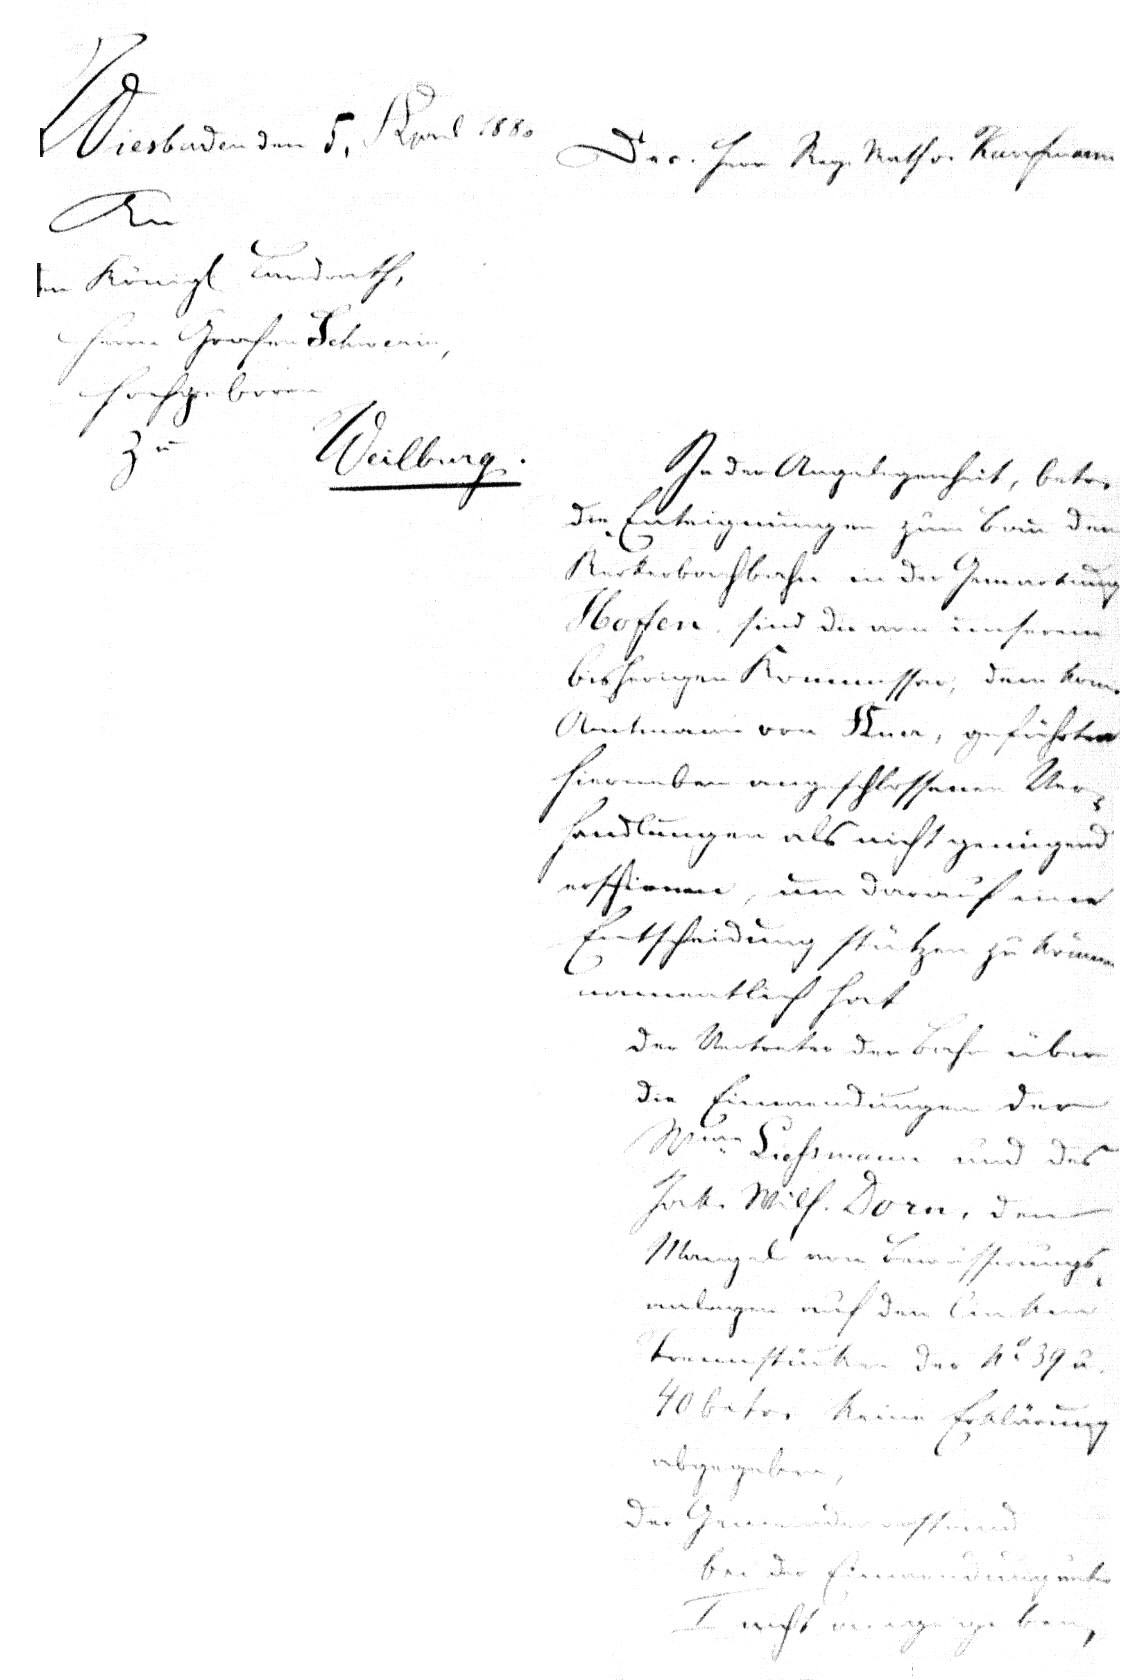 Wiesbaden den 5. April 1880
Dec. Herr Reg. Rath v. Kaufmann
An
den Königl Landrath,
Herrn Grafen Schwerin,
Hochgeboren
zu Weilburg.
In der Angelegenheit, betr.
die Enteignungen zum Bau der
Kerkerbachbahn in der Gemarkung
Hofen sind die von unserem
bisherigen Kommissar, dem kom.
Amtmann von, geführten
hierneben angeschlossenen Ver-
handlungen als nicht genügend
erschienen, um darauf eine
Entscheidung stützen zu können
namentlich hat
der Vertreter der Bahn über
die Einwendungen der
und des
Jak. Wilh. Dorn, den
Mangel von Bewässerungs-
anlagen auf den linken
Trennstücken der No 39 u.
40 betr. keine Erklärung
abgegeben,
der Gemeindevorstand
bei der Einwendung unter
I nicht angegeben,